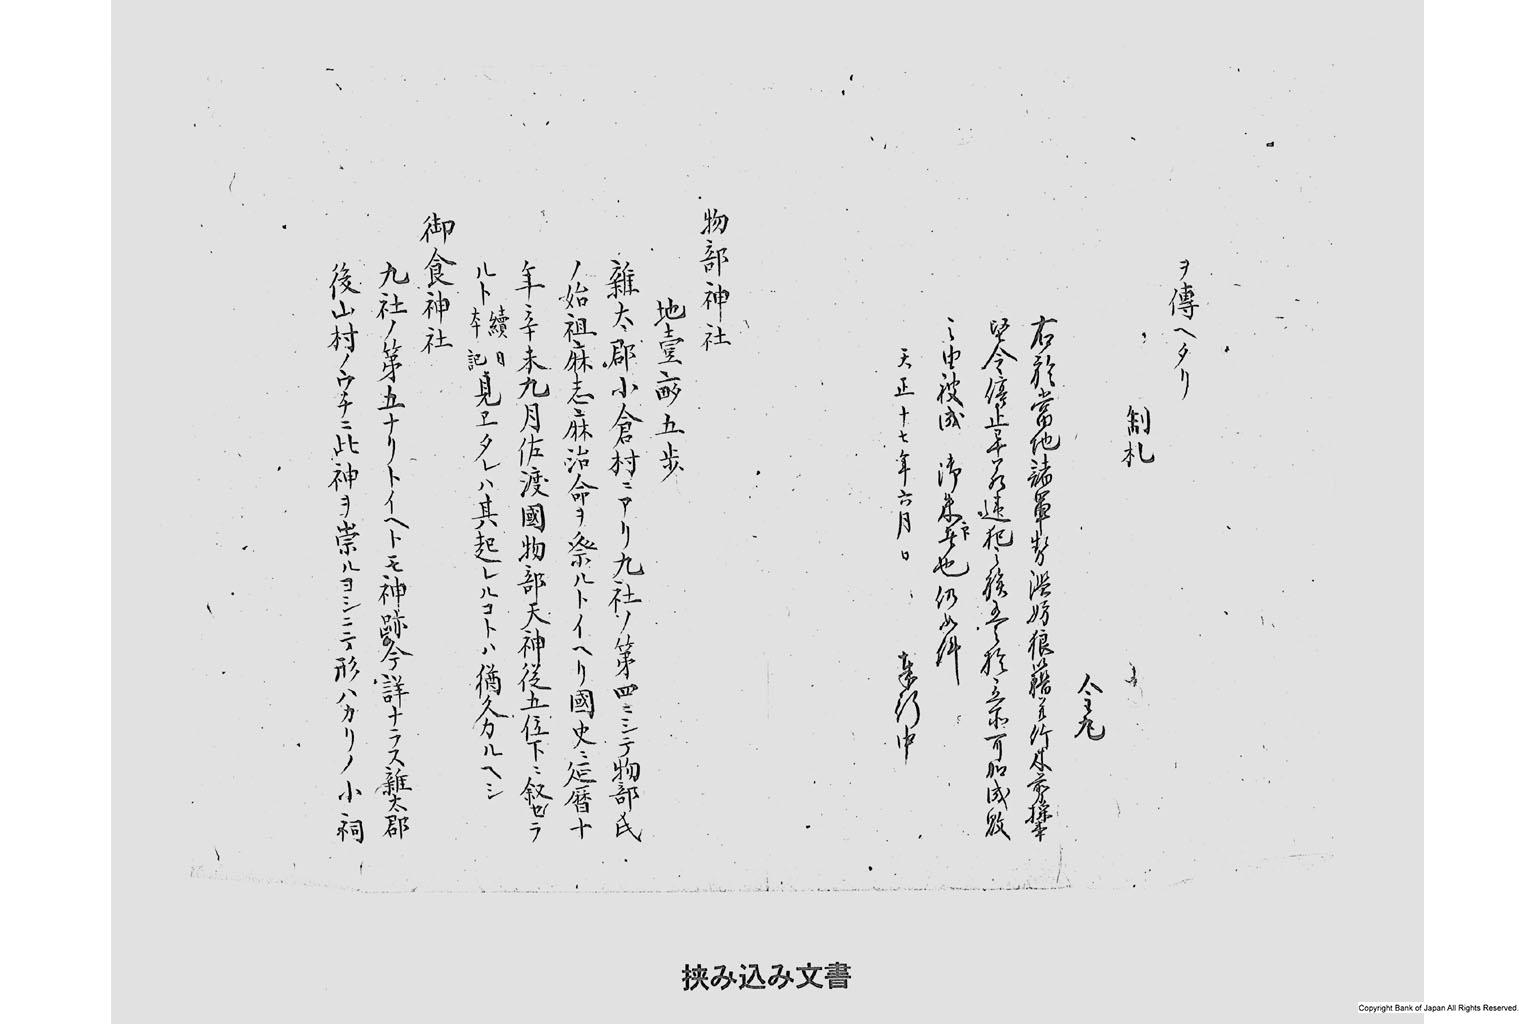 ヲ傳ヘタリ
制札
右於當地諸軍勢濫妨狼藉并竹木剪採事
堅令停止畢若違犯之族有之於立所可加成敗
之由被成 御朱印也仍如件
天正十七年六月日
物部神社
地壹畝五歩
雜太郡小倉村ニアリ九社ノ第四ニシテ物部氏
ノ始祖麻志麻治命ヲ祭ルトイヘリ國史ニ延暦十
年辛未九月佐渡國物部天神從五位下ニ叙セラ
ルト續日本記見ヱタレハ其起レルコトハ猶久カルヘシ
御食神社
九社ノ第五ナリトイヘトモ神跡今詳ナラス雜太郡
後山村ノウチニ此神ヲ崇ルヨシニテ形ハカリノ小祠
挟み込み文書
Copyright Bank of Japan All Rights Reserved.